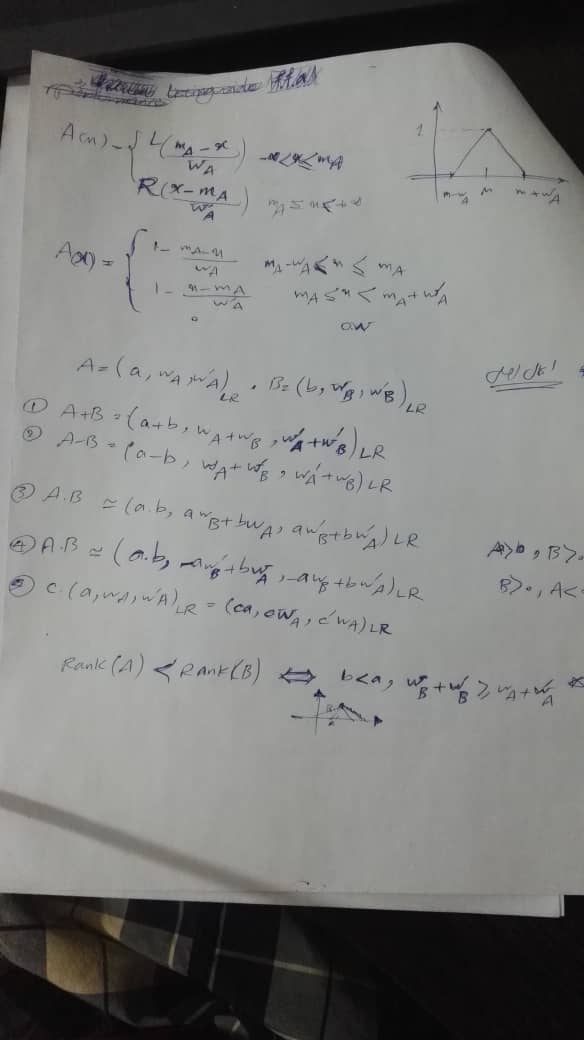 A(x) = { L(m_A - x / w_A) -∞ < x ≤ m_A
R(x - m_A / w'_A) m_A ≤ x < +∞
1
m-w_A M m+w'_A
A(x) = { 1 - m_A - x / w_A m_A - w_A ≤ x ≤ m_A
1 - x - m_A / w'_A m_A ≤ x < m_A + w'_A
0 o.w
A = (a, w_A, w'_A)_LR , B = (b, w_B, w'_B)_LR
① A+B = (a+b, w_A+w_B, w'_A+w'_B)_LR
② A-B = (a-b, w_A+w'_B, w'_A+w_B)_LR
③ A.B ≃ (a.b, aw_B+bw_A, aw'_B+bw'_A)_LR A>0, B>0
④ A.B ≃ (a.b, -aw'_B+bw_A, -aw_B+bw'_A)_LR B>0, A<
⑤ C.(a, w_A, w'_A)_LR = (ca, cw_A, cw'_A)_LR
Rank(A) < Rank(B) ⟺ b<a, w_B+w'_B ≥ w_A+w'_A
B
A